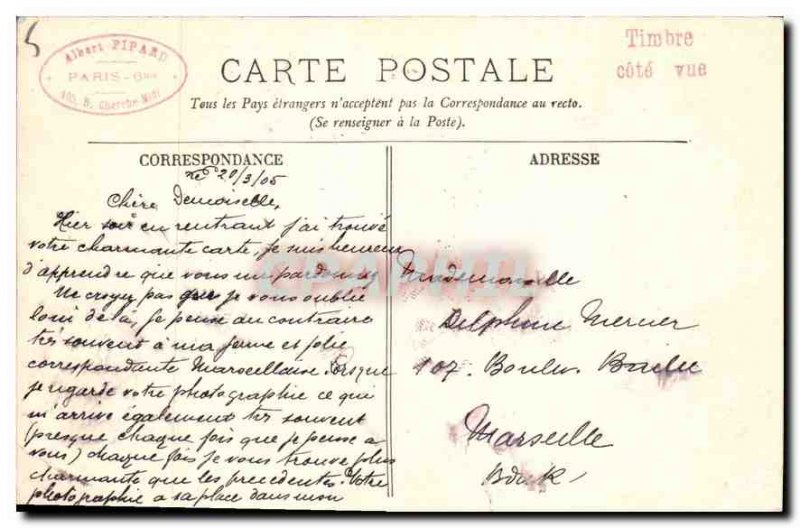 5
Albert PIPARD
PARIS - 6me
105, R. Cherche-Midi
Timbre
côté vue
CARTE POSTALE
Tous les Pays étrangers n'acceptent pas la Correspondance au recto.
(Se renseigner à la Poste).
CORRESPONDANCE
20/3/05
Chère Demoiselle,
Hier soir en rentrant j'ai trouvé
votre charmante carte, je suis heureux
d'apprendre que vous me pardonniez
Ne croyez pas que je vous oublie
loin de là, je pense au contraire
très souvent à ma jeune et jolie
correspondante Marseillaise. Lorsque
je regarde votre photographie ce qui
m'arrive également très souvent
(presque chaque fois que je pense a
vous) chaque fois je vous trouve plus
charmante que les precedentes. Votre
photographie a sa place dans mon
ADRESSE
Mademoiselle
Delphine Mercier
107. Boulev.
Marseille